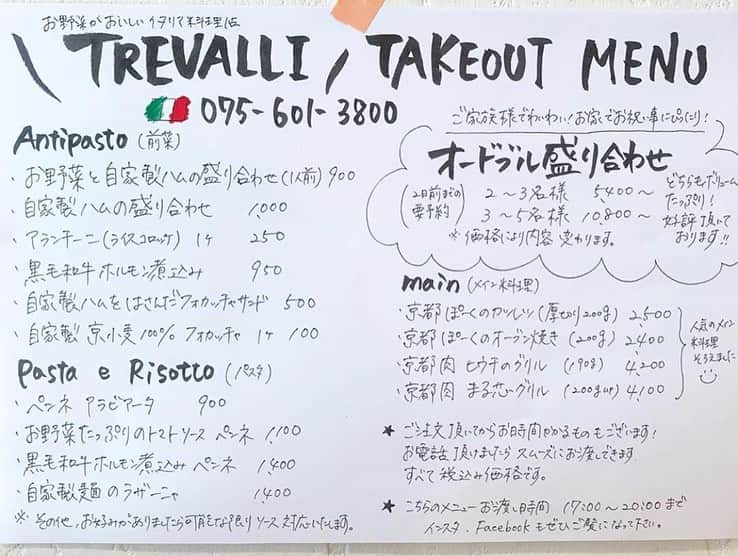 お野菜がおいしいイタリア料理店
\ TREVALLI / TAKEOUT MENU
075-601-3800
Antipasto (前菜)
・お野菜と自家製ハムの盛り合わせ(1人前) 900
・自家製ハムの盛り合わせ 1,000
・アランチーニ(ライスコロッケ) 1ケ 250
・黒毛和牛ホルモン煮込み 950
・自家製ハムをはさんだフォカッチャサンド 500
・自家製 京小麦100% フォカッチャ 1ケ 100
Pasta e Risotto (パスタ)
・ペンネ アラビアータ 900
・お野菜たっぷりのトマトソース ペンネ 1,100
・黒毛和牛ホルモン煮込み ペンネ 1,400
・自家製麺のラザーニャ 1,400
※その他、お好みがありましたら可能な限りソース対応いたします。
ご家族様でわいわい!お家でお祝い事にぴったり!
オードブル盛り合わせ
(2日前までの要予約)
2〜3名様 5,400〜
3〜5名様 10,800〜
※価格により内容変わります。
どちらもボリューム
たっぷり!
好評頂いて
おります!!
main (メイン料理)
・京都ぽーくのカツレツ (厚切り200g) 2,500
・京都ぽーくのオーブン焼き (200g) 2,400
・京都肉 ヒウチのグリル (190g) 4,200
・京都肉 まる芯のグリル (200gup) 4,100
人気のメイン
料理
そろえました
★ ご注文頂いてからお時間かかるものもございます!
お電話頂けましたらスムーズにお渡しできます
すべて税込み価格です。
★ こちらのメニューお渡し時間 17:00〜20:00まで
インスタ、Facebookもぜひご覧になって下さい。